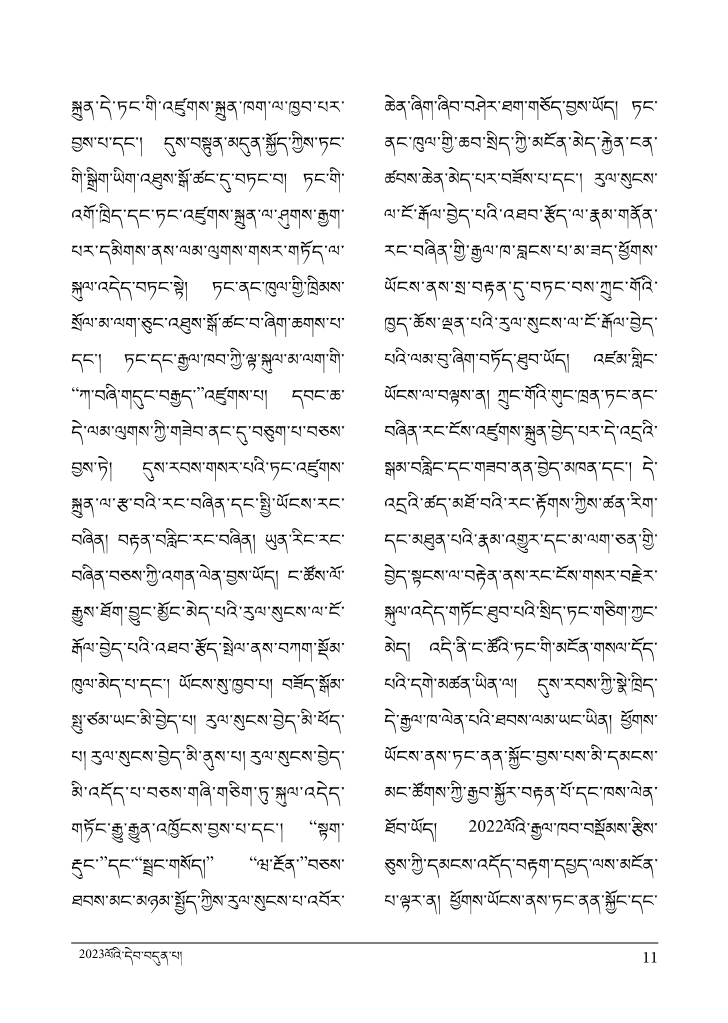 སྐྲུན་དེ་ཏང་གི་འཛུགས་སྐྲུན་ཁག་ལ་ཁྱབ་པར་
བྱས་པ་དང་། དུས་བསྟུན་མདུན་སྐྱོད་ཀྱིས་ཏང་
གི་སྒྲིག་ཡིག་འཐུས་སྒོ་ཚང་དུ་བཏང་བ། ཏང་གི་
འགོ་ཁྲིད་དང་ཏང་འཛུགས་སྐྲུན་ལ་ཤུགས་རྒྱག་
པར་དམིགས་ནས་ལམ་ལུགས་གསར་གཏོད་ལ་
སྐུལ་འདེད་བཏང་སྟེ། ཏང་ནང་ཁུལ་གྱི་ཁྲིམས་
སྲོལ་མ་ལག་ཅུང་འཐུས་སྒོ་ཚང་བ་ཞིག་ཆགས་པ་
དང་། ཏང་དང་རྒྱལ་ཁབ་ཀྱི་ལྟ་སྐུལ་མ་ལག་གི་
“ཀ་བཞི་གདུང་བརྒྱད་”འཛུགས་པ། དབང་ཆ་
དེ་ལམ་ལུགས་ཀྱི་གཟེབ་ནང་དུ་བཅུག་པ་བཅས་
བྱས་ཏེ། དུས་རབས་གསར་པའི་ཏང་འཛུགས་
སྐྲུན་ལ་རྩ་བའི་རང་བཞིན་དང་སྤྱི་ཡོངས་རང་
བཞིན། བརྟན་བརླིང་རང་བཞིན། ཡུན་རིང་རང་
བཞིན་བཅས་ཀྱི་འགན་ལེན་བྱས་ཡོད། ང་ཚོས་ལོ་
རྒྱུས་ཐོག་བྱུང་མྱོང་མེད་པའི་རུལ་སུངས་ལ་ངོ་
རྒོལ་བྱེད་པའི་འཐབ་རྩོད་སྤེལ་ནས་བཀག་སྡོམ་
ཁུལ་མེད་པ་དང་། ཡོངས་སུ་ཁྱབ་པ། བཟོད་སྒོམ་
སྤུ་ཙམ་ཡང་མི་བྱེད་པ། རུལ་སུངས་བྱེད་མི་ཕོད་
པ། རུལ་སུངས་བྱེད་མི་ནུས་པ། རུལ་སུངས་བྱེད་
མི་འདོད་པ་བཅས་གཞི་གཅིག་ཏུ་སྐུལ་འདེད་
གཏོང་རྒྱུ་རྒྱུན་འཁྱོངས་བྱས་པ་དང་། “སྟག་
རྡུང་”དང་“སྦྲང་གསོད།” “ཝ་རྔོན་”བཅས་
ཐབས་མང་མཉམ་སྤྱོད་ཀྱིས་རུལ་སུངས་པ་འབོར་
ཆེན་ཞིག་ཞིབ་བཤེར་ཐག་གཅོད་བྱས་ཡོད། ཏང་
ནང་ཁུལ་གྱི་ཆབ་སྲིད་ཀྱི་མངོན་མེད་རྐྱེན་ངན་
ཚབས་ཆེན་མེད་པར་བཟོས་པ་དང་། རུལ་སུངས་
ལ་ངོ་རྒོལ་བྱེད་པའི་འཐབ་རྩོད་ལ་རྣམ་གནོན་
རང་བཞིན་གྱི་རྒྱལ་ཁ་བླངས་པ་མ་ཟད་ཕྱོགས་
ཡོངས་ནས་སྲ་བརྟན་དུ་བཏང་བས་ཀྲུང་གོའི་
ཁྱད་ཆོས་ལྡན་པའི་རུལ་སུངས་ལ་ངོ་རྒོལ་བྱེད་
པའི་ལམ་བུ་ཞིག་བཏོད་ཐུབ་ཡོད། འཛམ་གླིང་
ཡོངས་ལ་བལྟས་ན། ཀྲུང་གོའི་གུང་ཁྲན་ཏང་ནང་
བཞིན་རང་ངོས་འཛུགས་སྐྲུན་བྱེད་པར་དེ་འདྲའི་
སྒམ་བརླིང་དང་གཟབ་ནན་བྱེད་མཁན་དང་། དེ་
འདྲའི་ཚད་མཐོ་བའི་རང་རྟོགས་ཀྱིས་ཚན་རིག་
དང་མཐུན་པའི་རྣམ་འགྱུར་དང་མ་ལག་ཅན་གྱི་
བྱེད་སྟངས་ལ་བརྟེན་ནས་རང་ངོས་གསར་བརྗེར་
སྐུལ་འདེད་གཏོང་ཐུབ་པའི་སྲིད་ཏང་གཅིག་ཀྱང་
མེད། འདི་ནི་ང་ཚོའི་ཏང་གི་མངོན་གསལ་དོད་
པའི་དགེ་མཚན་ཡིན་ལ། དུས་རབས་ཀྱི་སྣེ་ཁྲིད་
དེ་རྒྱལ་ཁ་ལེན་པའི་ཐབས་ལམ་ཡང་ཡིན། ཕྱོགས་
ཡོངས་ནས་ཏང་ནན་སྐྱོང་བྱས་པས་མི་དམངས་
མང་ཚོགས་ཀྱི་རྒྱབ་སྐྱོར་བརྟན་པོ་དང་ཁས་ལེན་
ཐོབ་ཡོད། 2022ལོའི་རྒྱལ་ཁབ་བསྡོམས་རྩིས་
ཅུས་ཀྱི་དམངས་འདོད་བརྟག་དཔྱད་ལས་མངོན་
པ་ལྟར་ན། ཕྱོགས་ཡོངས་ནས་ཏང་ནན་སྐྱོང་དང་
2023ལོའི་དེབ་བདུན་པ།
11